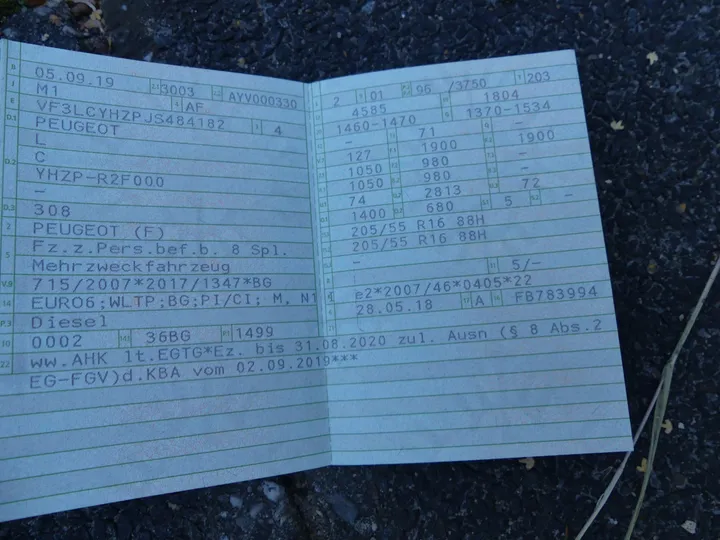 05.09.19 3003 AYV000330
M1 AF
VF3LCYHZPJS484182 4
PEUGEOT
L
C
YHZP-R2F000
-
308
PEUGEOT (F)
Fz.z.Pers.bef.b. 8 Spl.
Mehrzweckfahrzeug
715/2007*2017/1347*BG
EURO6;WLTP;BG;PI/CI; M, N1
Diesel
0002 36BG 1499
2 01 96 /3750 203
4585 1804
1460-1470 1370-1534
- 71 -
127 1900 1900
1050 980 -
1050 980 -
74 2813 72
1400 680 5 -
205/55 R16 88H
205/55 R16 88H
-
5/-
e2*2007/46*0405*22
28.05.18 A FB783994
ww.AHK lt.EGTG*Ez. bis 31.08.2020 zul. Ausn (§ 8 Abs.2
EG-FGV)d.KBA vom 02.09.2019***